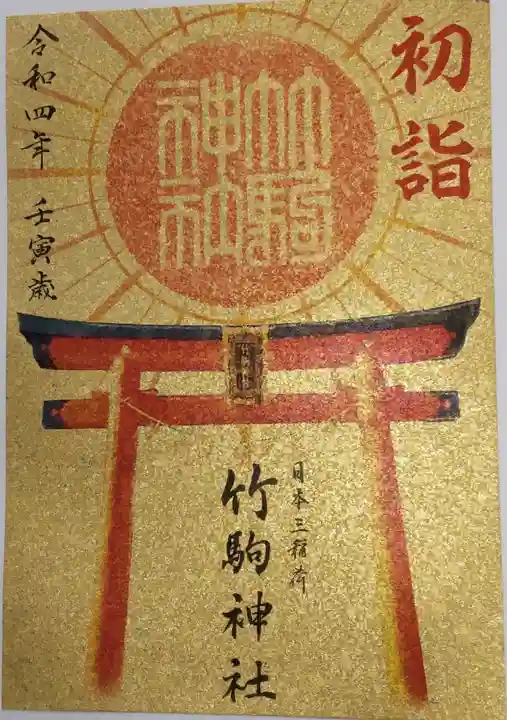 初詣
竹駒
神社
令和四年 壬寅歳
日本三稲荷
竹駒神社